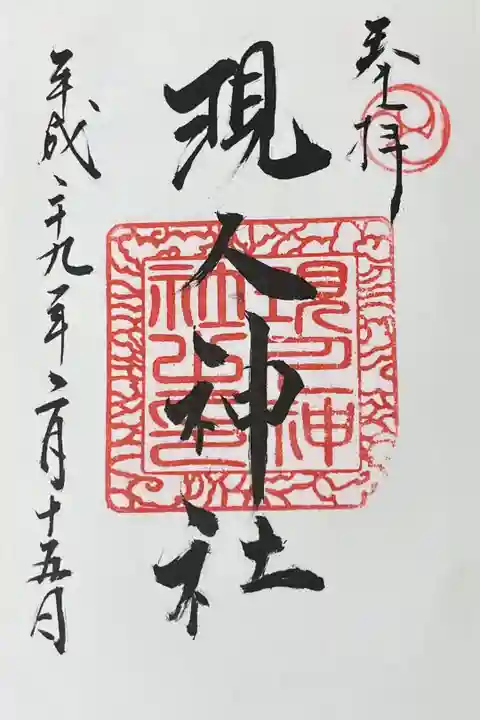 奉拝
現人神社
現人神
社之印
平成二十九年二月十五日